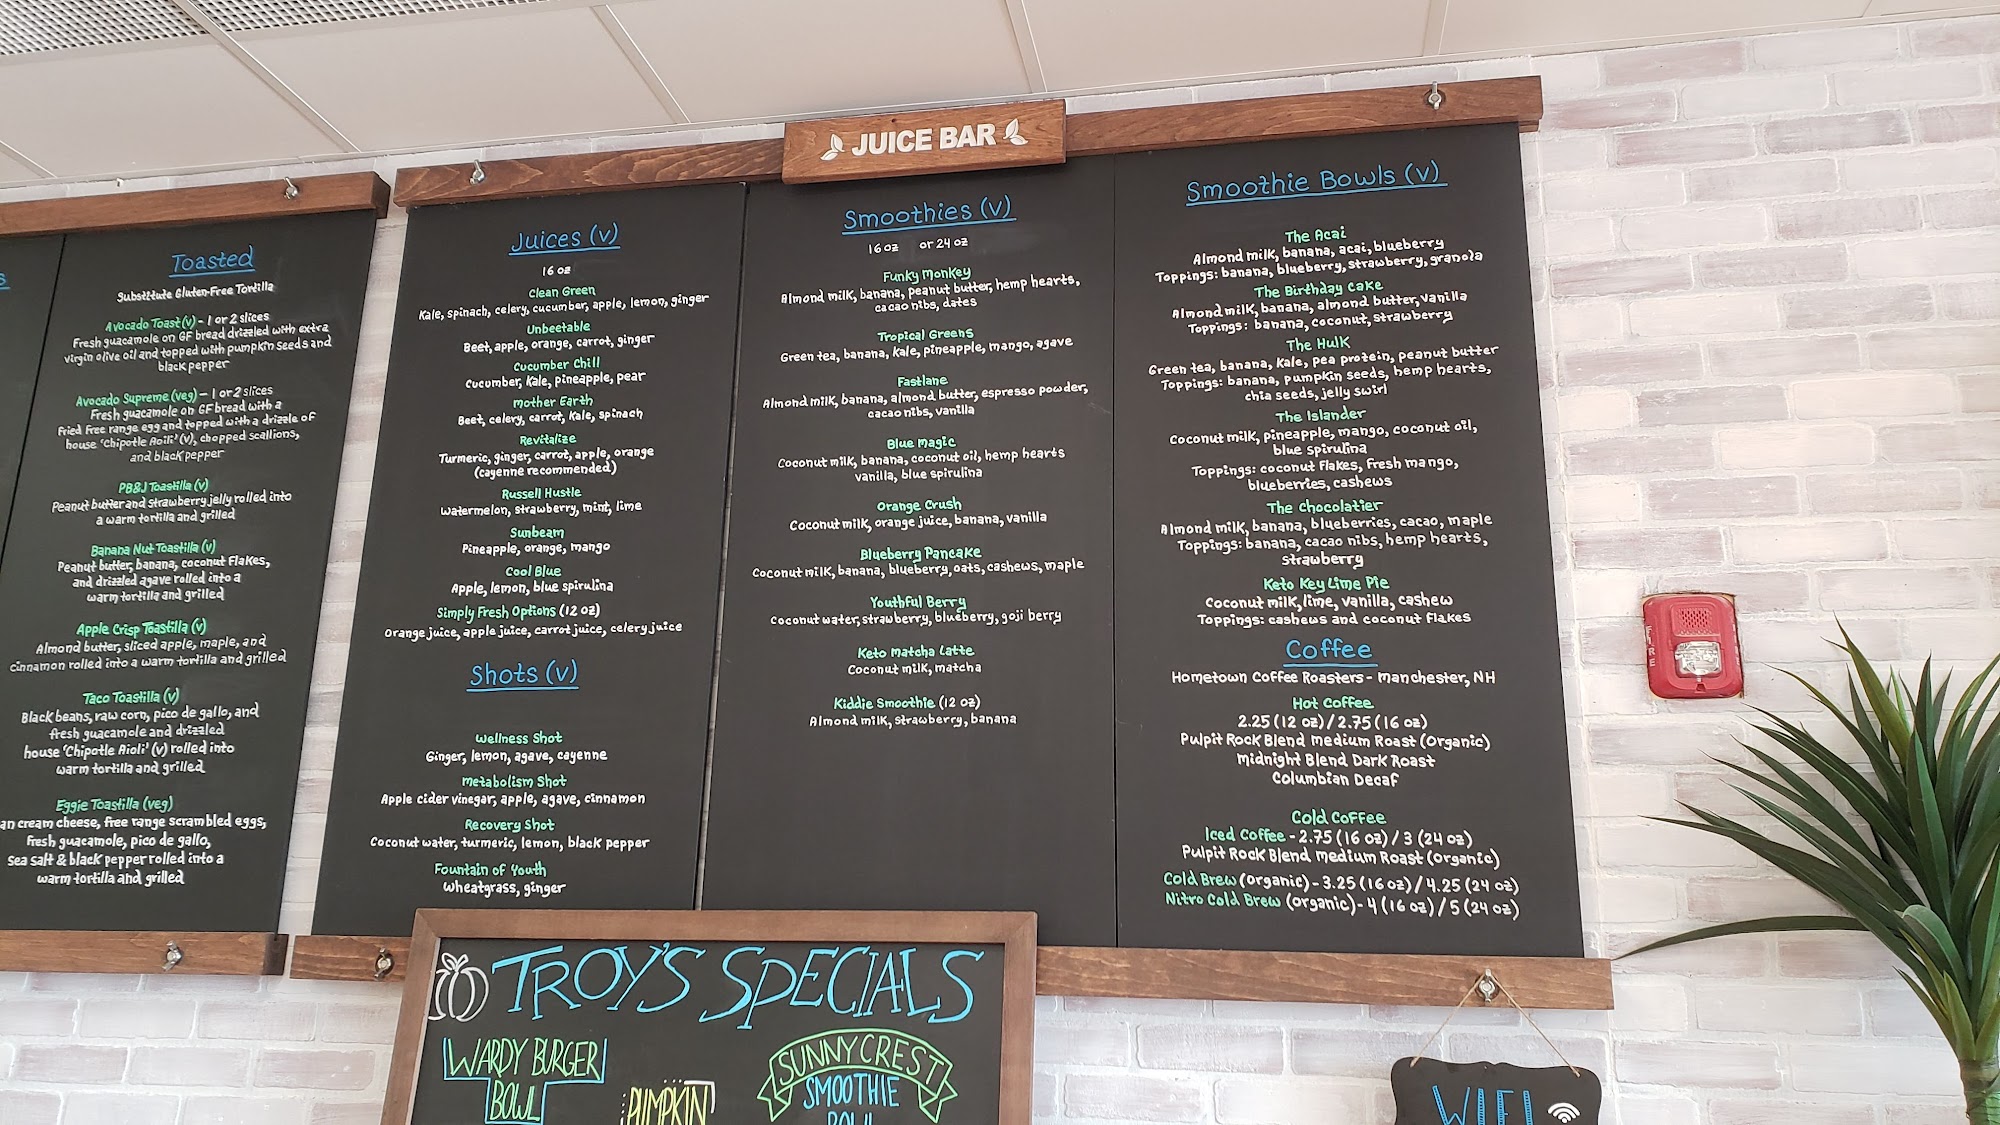 JUICE BAR
s
Toasted
Substitute Gluten-Free Tortilla
Avocado Toast (v) - 1 or 2 slices
Fresh guacamole on GF bread drizzled with extra
virgin olive oil and topped with pumpkin seeds and
black pepper
Avocado Supreme (veg) - 1 or 2 slices
Fresh guacamole on GF bread with a
Fried Free range egg and topped with a drizzle of
house 'Chipotle Aoili' (v), chopped scallions,
and black pepper
PB&J Toastilla (v)
Peanut butter and strawberry jelly rolled into
a warm tortilla and grilled
Banana Nut Toastilla (v)
Peanut butter, banana, coconut Flakes,
and drizzled agave rolled into a
warm tortilla and grilled
Apple Crisp Toastilla (v)
Almond butter, sliced apple, maple, and
cinnamon rolled into a warm tortilla and grilled
Taco Toastilla (v)
Black beans, raw corn, pico de gallo, and
fresh guacamole and drizzled
house 'Chipotle Aioli' (v) rolled into
warm tortilla and grilled
Eggie Toastilla (veg)
an cream cheese, free range scrambled eggs,
fresh guacamole, pico de gallo,
sea salt & black pepper rolled into a
warm tortilla and grilled
Juices (v)
16 oz
Clean Green
Kale, spinach, celery, cucumber, apple, lemon, ginger
Unbeetable
Beet, apple, orange, carrot, ginger
Cucumber Chill
Cucumber, Kale, pineapple, pear
Mother Earth
Beet, celery, carrot, Kale, spinach
Revitalize
Turmeric, ginger, carrot, apple, orange
(cayenne recommended)
Russell Hustle
Watermelon, strawberry, mint, lime
Sunbeam
Pineapple, orange, mango
Cool Blue
Apple, lemon, blue spirulina
Simply Fresh Options (12 oz)
Orange juice, apple juice, carrot juice, celery juice
Shots (v)
Wellness Shot
Ginger, lemon, agave, cayenne
Metabolism Shot
Apple cider vinegar, apple, agave, cinnamon
Recovery Shot
Coconut water, turmeric, lemon, black pepper
Fountain of Youth
Wheatgrass, ginger
Smoothies (v)
16 oz or 24 oz
Funky Monkey
Almond milk, banana, peanut butter, hemp hearts,
cacao nibs, dates
Tropical Greens
Green tea, banana, Kale, pineapple, mango, agave
Fastlane
Almond milk, banana, almond butter, espresso powder,
cacao nibs, vanilla
Blue Magic
Coconut milk, banana, coconut oil, hemp hearts
vanilla, blue spirulina
Orange Crush
Coconut milk, orange juice, banana, vanilla
Blueberry Pancake
Coconut milk, banana, blueberry, oats, cashews, maple
Youthful Berry
Coconut water, strawberry, blueberry, goji berry
Keto Matcha Latte
Coconut milk, matcha
Kiddie Smoothie (12 oz)
Almond milk, strawberry, banana
Smoothie Bowls (v)
The Acai
Almond milk, banana, acai, blueberry
Toppings: banana, blueberry, strawberry, granola
The Birthday Cake
Almond milk, banana, almond butter, vanilla
Toppings: banana, coconut, strawberry
The Hulk
Green tea, banana, Kale, pea protein, peanut butter
Toppings: banana, pumpkin seeds, hemp hearts,
chia seeds, jelly swirl
The Islander
Coconut milk, pineapple, mango, coconut oil,
blue spirulina
Toppings: coconut flakes, fresh mango,
blueberries, cashews
The Chocolatier
Almond milk, banana, blueberries, cacao, maple
Toppings: banana, cacao nibs, hemp hearts,
strawberry
Keto Key Lime Pie
Coconut milk, lime, vanilla, cashew
Toppings: cashews and coconut flakes
Coffee
Hometown Coffee Roasters - Manchester, NH
Hot Coffee
2.25 (12 oz) / 2.75 (16 oz)
Pulpit Rock Blend Medium Roast (Organic)
Midnight Blend Dark Roast
Columbian Decaf
Cold Coffee
Iced Coffee - 2.75 (16 oz) / 3 (24 oz)
Pulpit Rock Blend Medium Roast (Organic)
Cold Brew (organic) - 3.25 (16 oz) / 4.25 (24 oz)
Nitro Cold Brew (organic) - 4 (16 oz) / 5 (24 oz)
FIRE
TROY'S SPECIALS
WARDY BURGER
BOWL
PUMPKIN
SUNNYCREST
SMOOTHIE
BOWL
WIFI